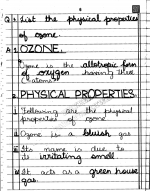 Q: List the physical properties
of ozone.
A: OZONE.
Ozone is the allotropic form
of oxygen having three
PHYSICAL PROPERTIES
Following are the physical
properties of ozone
Ozone is a bluish gas
Its name is due to
its irritating smell
It acts as a green house
gas.